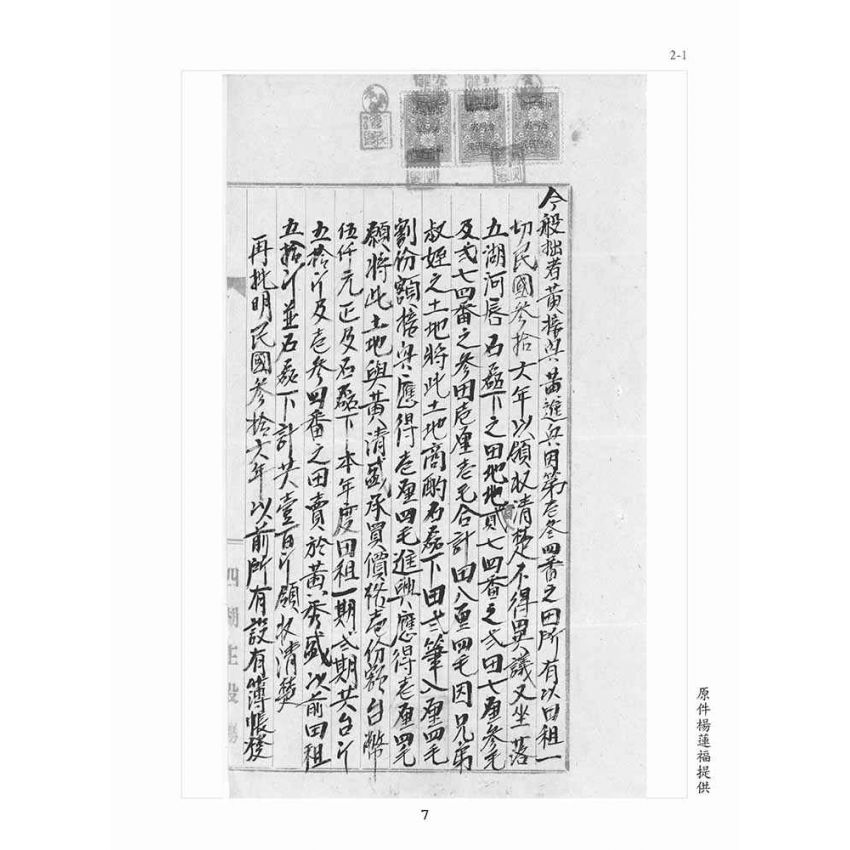 2-1
今般拙者黃接興黃進興因第壱叁四番之田所有以田租一
切民國叁拾六年以領收清楚不得異議又坐落
五湖河唇石磊下之田地地貳七四番之弍田七厘參毛
及弍七四番之參田壱厘壱毛合計田八厘四毛因兄弟
叔姪之土地將此土地商酌石磊下田弍筆八厘四毛
割份額接興應得壱厘四毛進興應得壱厘四毛
願將此土地與黃清盛承買價格壱份額台幣
伍仟元正及石磊下本年度田租一期弍期共台斤
五拾斤及壱參四番之田賣於黃秀盛以前田租
五拾斤並石磊下計共壹百斤領收清楚
再批明民國叁拾六年以前所有設有簿帳後
四湖庄役場
原件楊蓮福提供
7